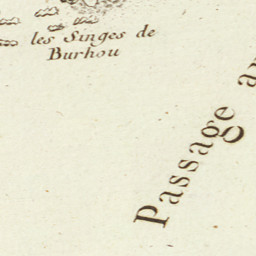 les Singes de
Burhou
Passage